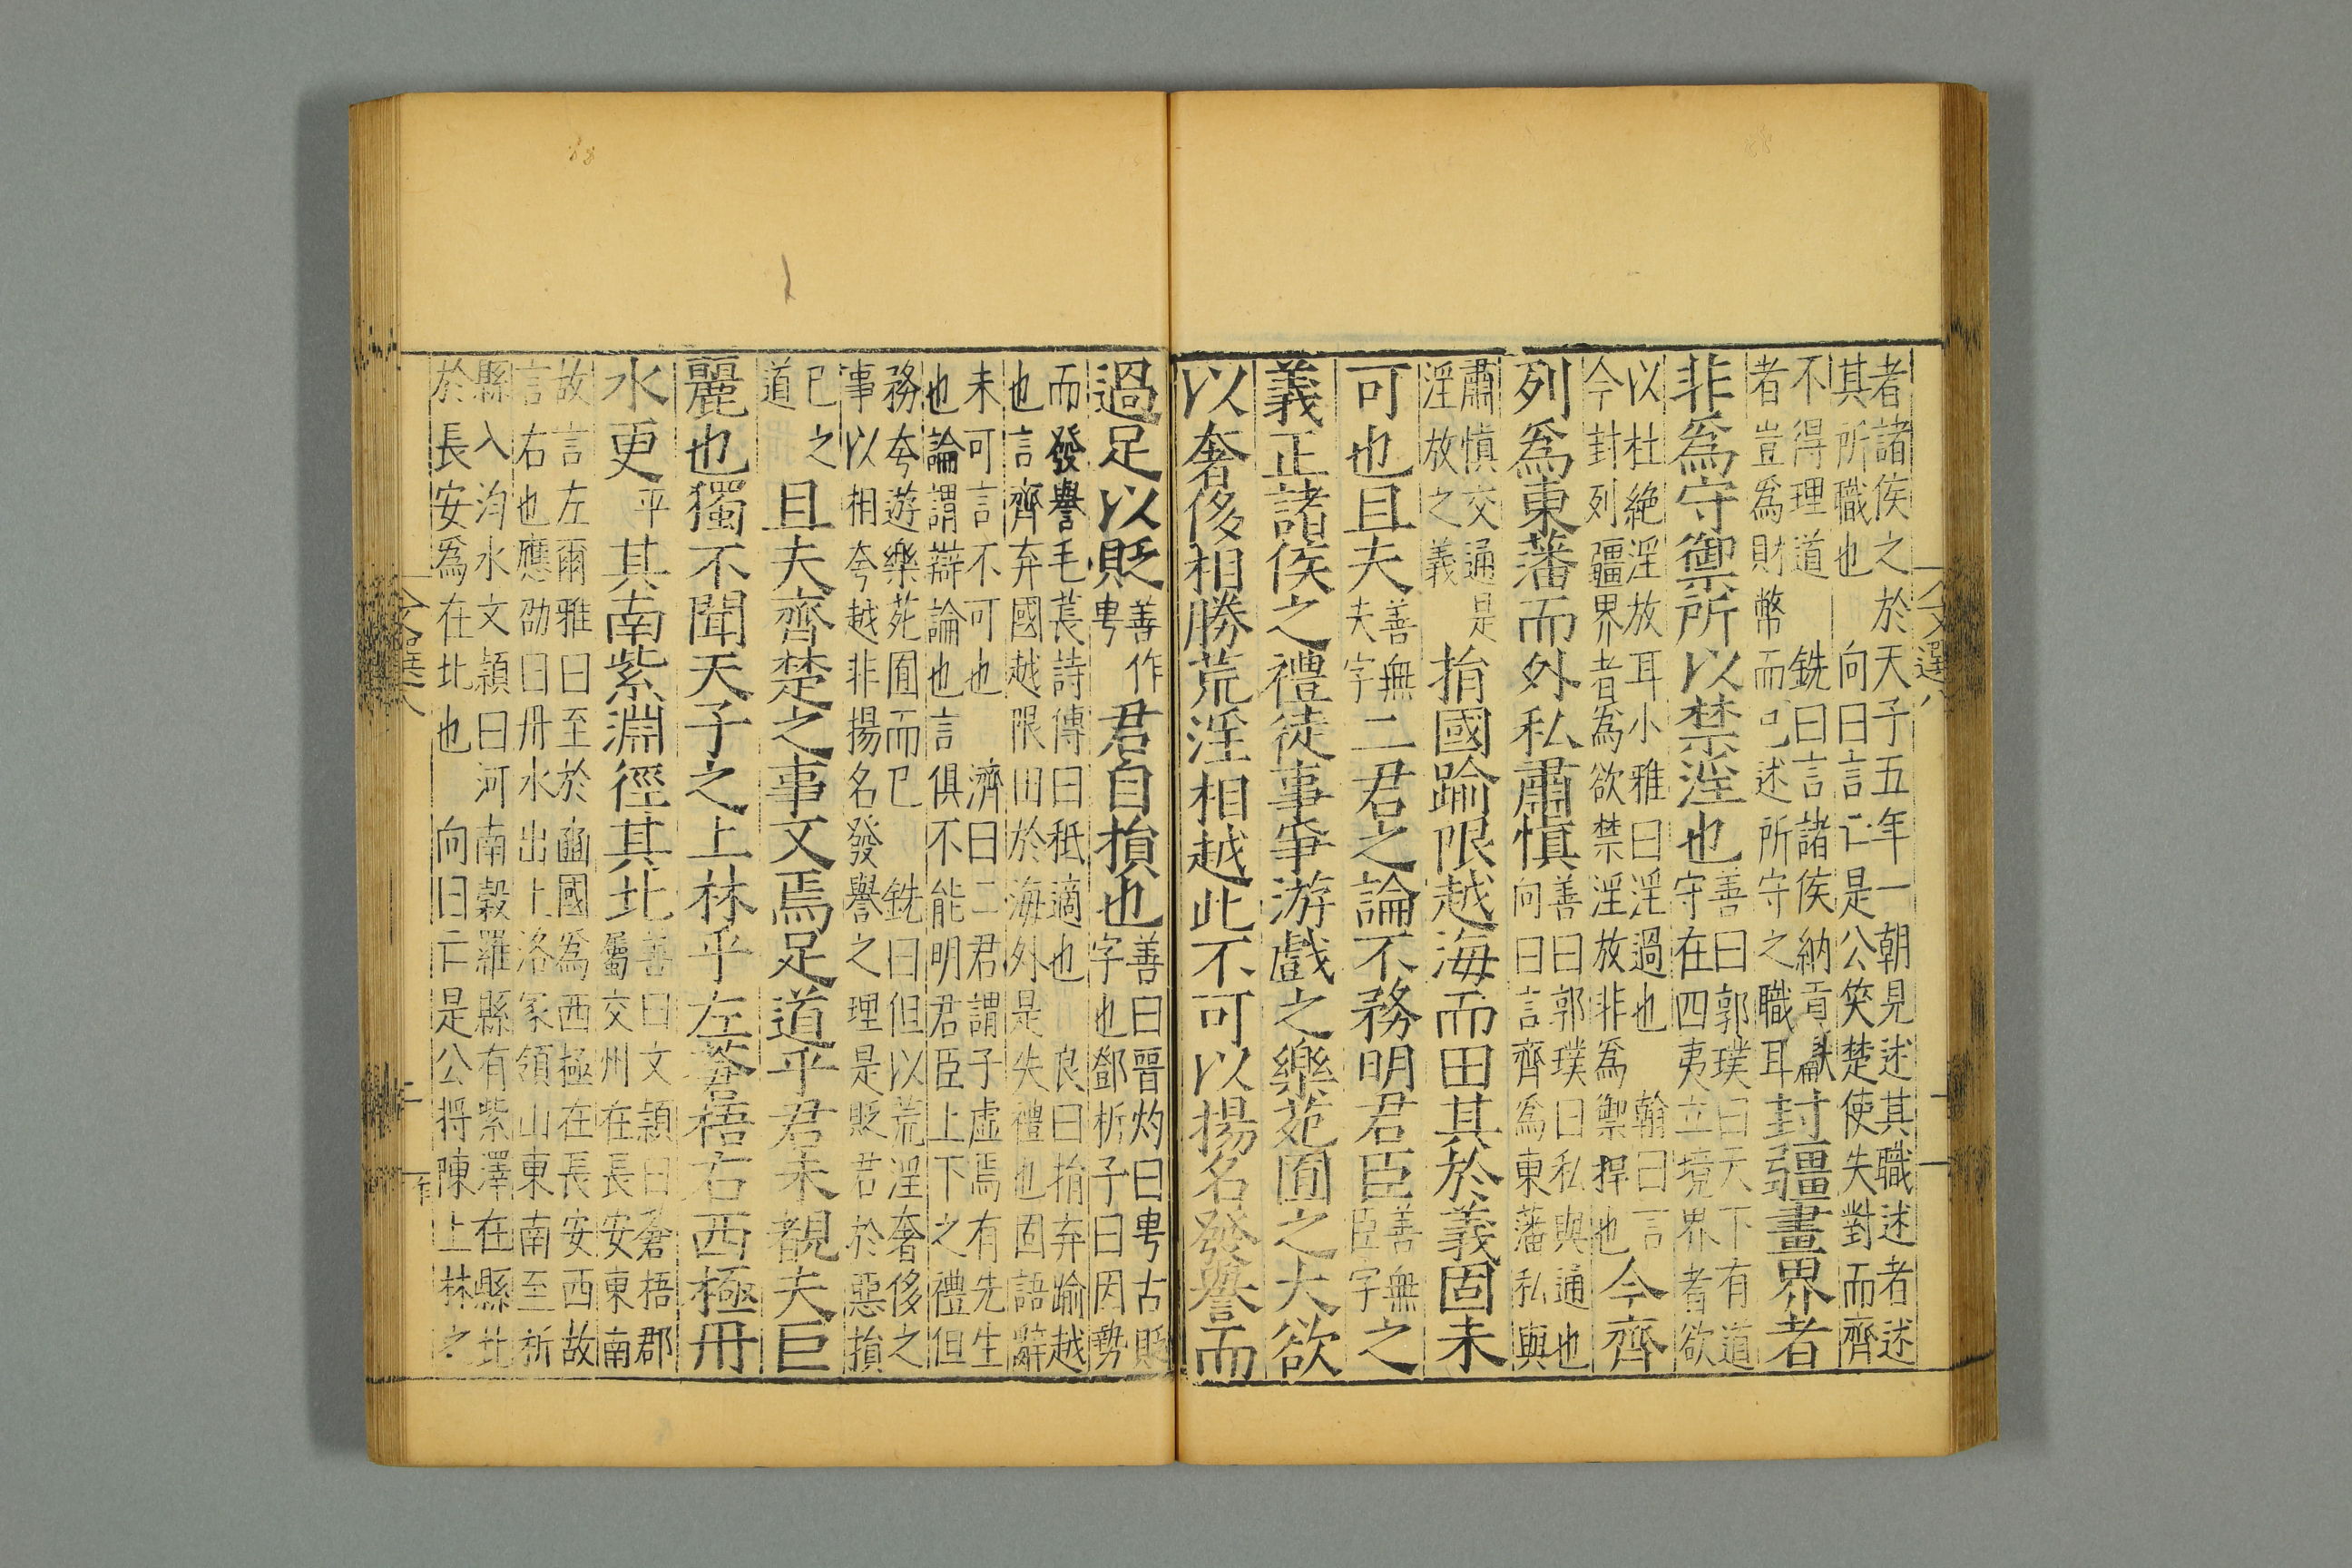 文選八
者諸侯之於天子五年一朝見述其職述者述
其所職也　向曰言亡是公笑楚使失對而齊
不得理道　銑曰言諸侯納貢獻
者豈爲財幣而已述所守之職耳
封疆畫界者
非爲守禦所以禁淫也
善曰郭璞曰天下有道
守在四夷立境界者欲
以杜絶淫放耳小雅曰淫過也　翰曰言
今封列疆界者為欲禁淫放非爲禦捍也
今齊
列爲東藩而外私肅慎
善曰郭璞曰私與通也
向曰言齊爲東藩私與
肅慎交通是
淫放之義
捐國踰限越海而田其於義固未
可也且夫
善無
夫字
二君之論不務明君臣
善無
臣字
之
義正諸侯之禮徒事爭游戲之樂苑囿之大欲
以奢侈相勝荒淫相越此不可以揚名發譽而
過足以貶
善作
甹
君自損也
善曰晉灼曰甹古貶
字也鄧析子曰因勢
而發譽毛萇詩傳曰秖適也　良曰捐弃踰越
也言齊弃國越限田於海外是失禮也固語辭
未可言不可也　濟曰二君謂子虛焉有先生
也論謂辯論也言俱不能明君臣上下之禮但
務夸遊樂苑囿而已　銑曰但以荒淫奢侈之
事以相夸越非揚名發譽之理是貶君於惡損
已之
道
且夫齊楚之事又焉足道乎君未覩夫巨
麗也獨不聞天子之上林乎左蒼梧右西極丹
水更
平
其南紫淵徑其北
善曰文穎曰蒼梧郡
屬交州在長安東南
故言左爾雅曰至於豳國爲西極在長安西故
言右也應劭曰丹水出上洛冢領山東南至析
縣入沟水文穎曰河南穀羅縣有紫澤在縣北
於長安爲在北也　向曰亡是公將陳上林之